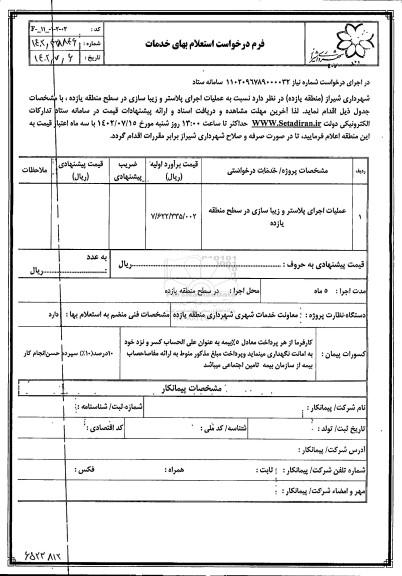 فرم درخواست استعلام بهای خدمات
کد : F-11-0-202
شماره :
تاریخ :
در اجرای درخواست شماره نیاز ۱۱۰۲۰۹۶۷۸۹۰۰۰۰۳۲ سامانه ستاد
شهرداری شیراز (منطقه یازده) در نظر دارد نسبت به عملیات اجرای پلاستر و زیبا سازی در سطح منطقه یازده ، با مشخصات
جدول ذیل اقدام نماید. لذا آخرین مهلت مشاهده و دریافت اسناد و ارائه پیشنهادات قیمت در سامانه ستاد تدارکات
الکترونیکی دولت WWW.Setadiran.ir حداکثر تا ساعت ۱۳:۰۰ روز شنبه مورخ ۱۴۰۲/۰۷/۱۵ با سه ماه اعتبار قیمت به
این منطقه اعلام فرمایید، تا در صورت صرفه و صلاح شهرداری شیراز برابر مقررات اقدام گردد.
ردیف
مشخصات پروژه/ خدمات درخواستی
قیمت برآورد اولیه (ریال)
ضریب پیشنهادی
قیمت پیشنهادی (ریال)
ملاحظات
۱
عملیات اجرای پلاستر و زیبا سازی در سطح منطقه
یازده
۷/۶۲۲/۳۳۵/۰۰۲
قیمت پیشنهادی به حروف : ریال
به عدد : ریال
مدت اجرا : ۵ ماه
محل اجرا : در سطح منطقه یازده
دستگاه نظارت پروژه : معاونت خدمات شهری شهرداری منطقه یازده
مشخصات فنی منضم به استعلام بها : دارد
کسورات پیمان :
کارفرما از هر پرداخت معادل ۵٪ بیمه به عنوان علی الحساب کسر و نزد خود
به امانت نگهداری مینماید وپرداخت مبلغ مذکور منوط به ارائه مفاصاحساب
بیمه از سازمان بیمه تامین اجتماعی میباشد
۱۰درصد(۱۰٪) سپرده حسن انجام کار
مشخصات پیمانکار
نام شرکت/ پیمانکار :
شماره ثبت/ شناسنامه :
تاریخ ثبت/ تولد :
شناسه/ کد ملی :
کد اقتصادی :
آدرس شرکت/ پیمانکار :
شماره تلفن شرکت/ پیمانکار :
ثابت :
همراه :
فکس :
مهر و امضاء شرکت/ پیمانکار :